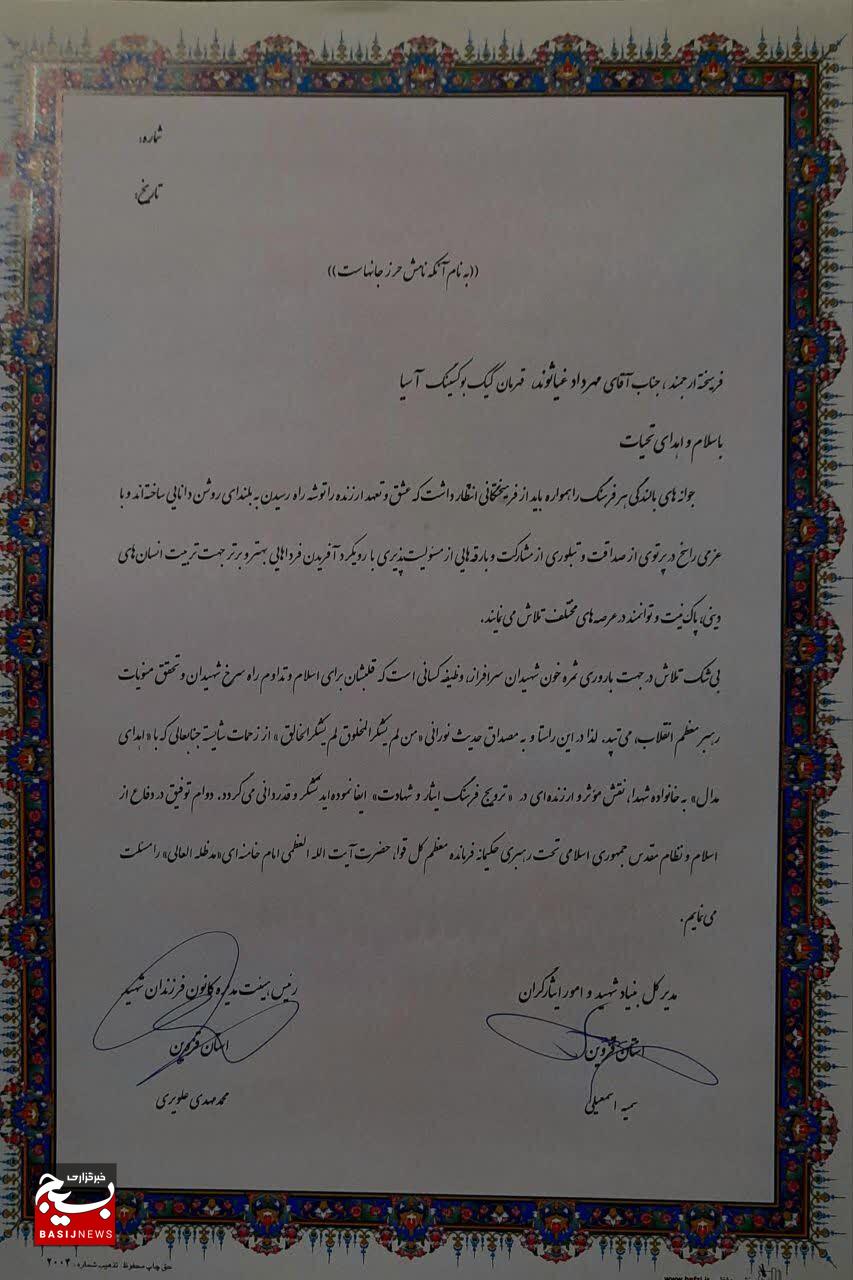 شماره:
تاریخ:
((به نام آنکه نامش حرز جانهاست))
فرهیخته ارجمند ، جناب آقای مهرداد غیاثوند، قهرمان کیک بوکسینگ آسیا
با سلام و اهدای تحیات
جوانه های بالندگی هر فرهنگ را همواره باید از فرهیختگانی انتظار داشت که عشق و تعهد ارزنده را توشه راه رسیدن به بلندای روشن دانایی ساخته اند و با
عزمی راسخ در پرتوی از صداقت و تبلوری از مشارکت و بارقه هایی از مسئولیت پذیری با رویکرد آفریدن فرداهایی بهتر و برتر جهت تربیت انسان های
دینی، پاک نیت و توانمند در عرصه های مختلف تلاش می نمایند.
بی شک تلاش در جهت باروری ثمره خون شهیدان سرافراز، وظیفه کسانی است که قلبشان برای اسلام و تداوم راه سرخ شهیدان و تحقق منویات
رهبر معظم انقلاب، می تپد. لذا در این راستا و به مصداق حدیث نورانی «من لم یشکر المخلوق لم یشکر الخالق» از زحمات شایسته جنابعالی که با «اهدای
مدال» به خانواده شهدا، نقش مؤثر و ارزنده ای در «ترویج فرهنگ ایثار و شهادت» ایفا نموده اید تشکر و قدردانی می گردد. دوام توفیق در دفاع از
اسلام و نظام مقدس جمهوری اسلامی تحت رهبری حکیمانه فرمانده معظم کل قوا، حضرت آیت الله العظمی امام خامنه ای «مدظله العالی» را مسئلت
می نمایم.
مدیر کل بنیاد شهید و امور ایثارگران
استان قزوین
سمیه اسمعیلی
رئیس هیئت مدیره کانون فرزندان شهید
استان قزوین
محمد مهدی علویری
خبرگزاری
بسیج
BASIJNEWS
حق چاپ محفوظ. تذهیب شماره: ۲۰۰۴